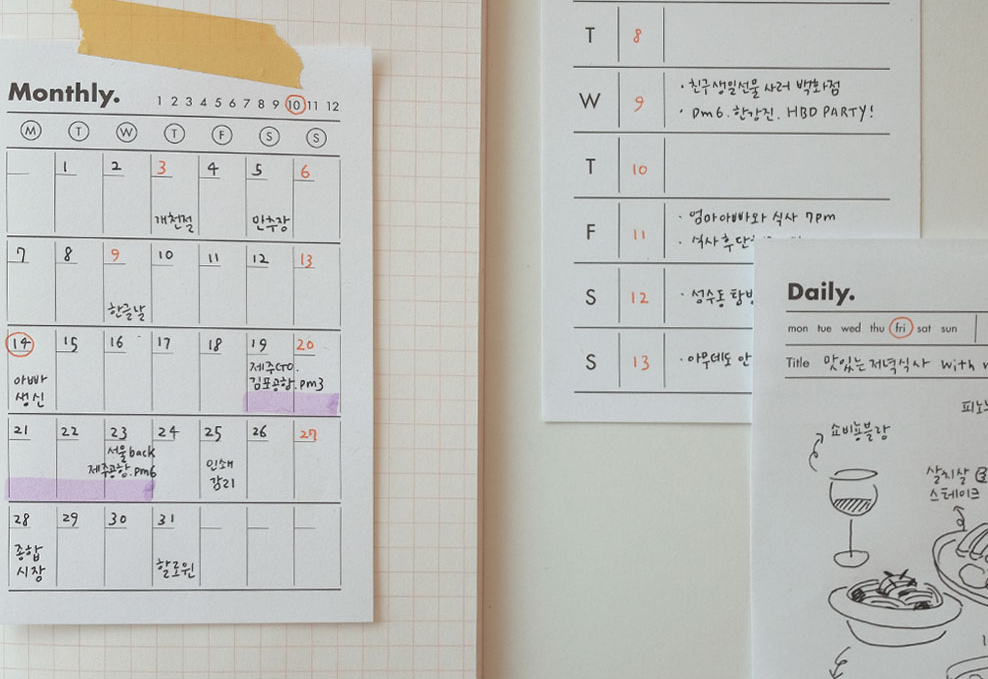 Monthly.
1 2 3 4 5 6 7 8 9 10 11 12
M T W T F S S
1 2 3 4 5 6
개천절 만추장
7 8 9 10 11 12 13
한글날
14 15 16 17 18 19 20
아빠
생신
제주GO.
김포공항.pm3
21 22 23 24 25 26 27
서울back
제주공항.pm6
인쇄
감리
28 29 30 31
종합
시장
할로윈
T 8
W 9
· 친구생일선물 사러 백화점
· pm6. 한강진. HBD PARTY!
T 10
F 11
· 엄마아빠와 식사 7pm
· 식사 후
S 12
· 성수동
S 13
· 아무데도 안
Daily.
mon tue wed thu fri sat sun
Title 맛있는 저녁식사 with
쇼비뇽블랑
살치살
스테이크